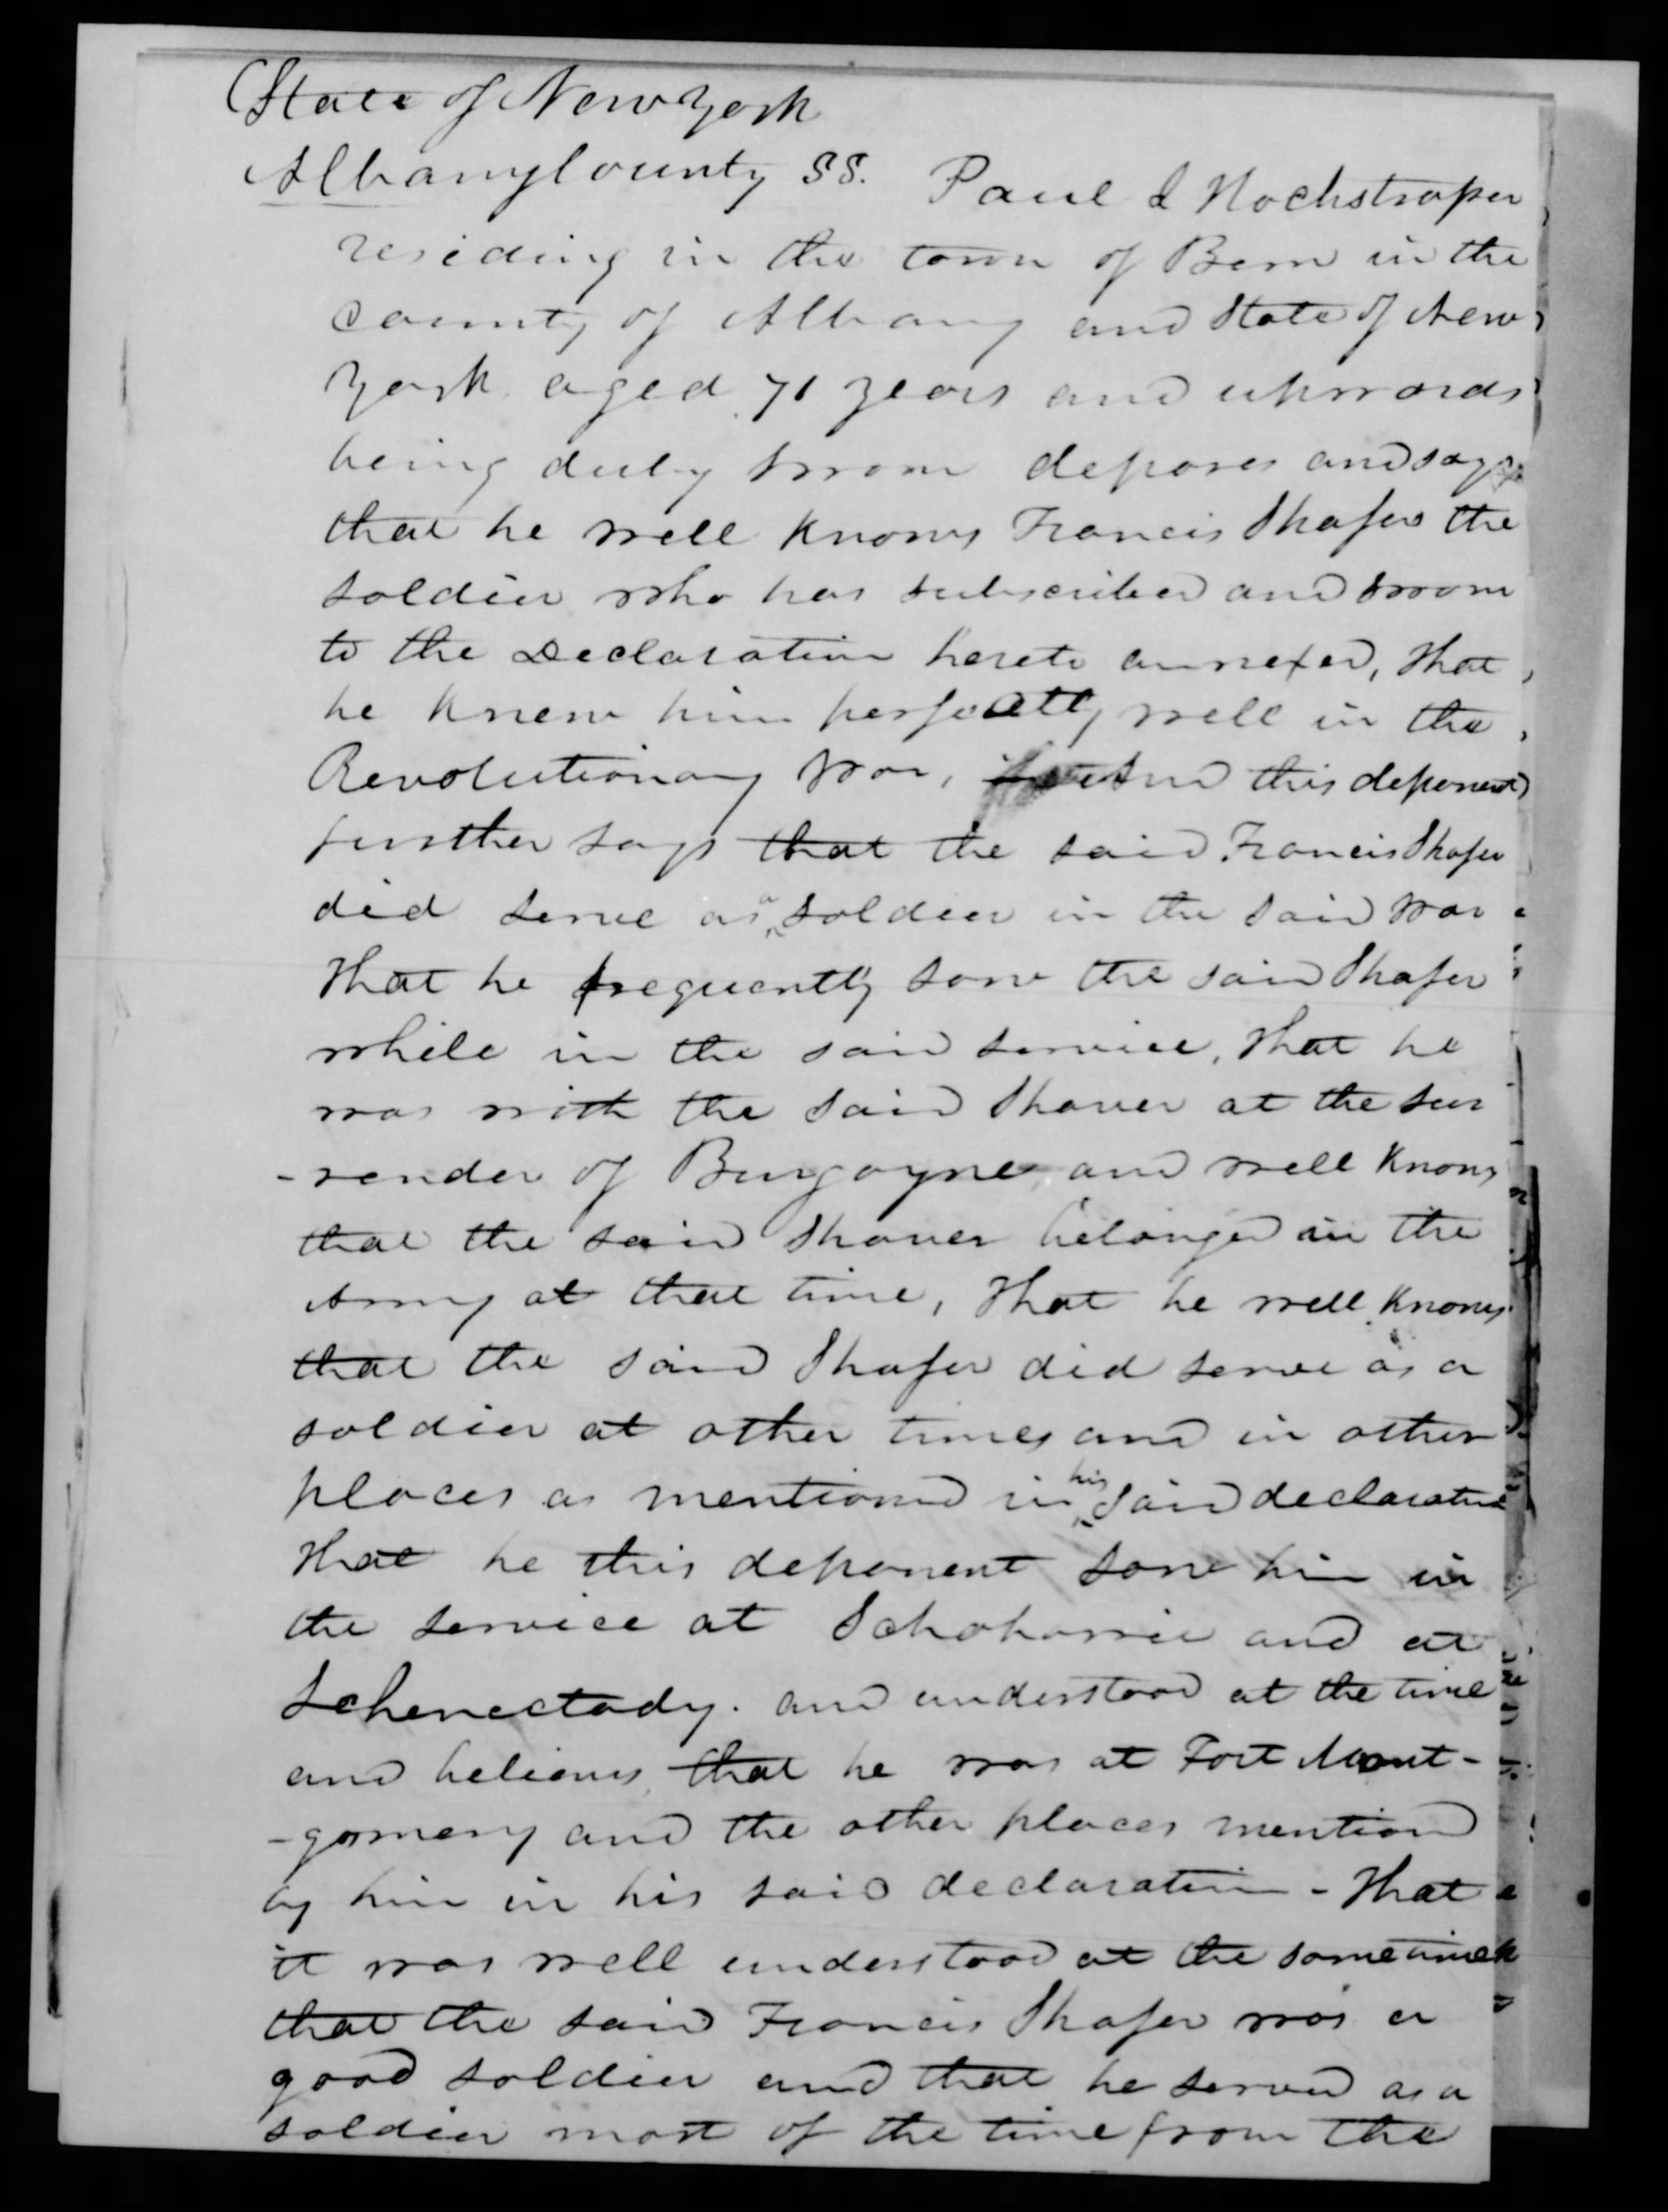 State of New York
Albany County SS. Paul I Hochstrasser
residing in the town of Bern in the
county of Albany and State of New
York aged 71 years and upwards
being duly sworn deposes and says
that he well knows Francis Shafer the
soldier who has subscribed and sworn
to the Declaration hereto annexed, that
he knew him perfectly well in the
Revolutionary War, And this deponent
further says that the said Francis Shafer
did serve as a soldier in the said War
that he frequently saw the said Shafer
while in the said service, that he
was with the said Shaver at the sur
-render of Burgoyne and well knows
that the said Shaver belonged in the
Army at that time, that he well knows
that the said Shafer did serve as a
soldier at other times and in other
places as mentioned in his said declaration
that he this deponent saw him in
the service at Schoharrie and at
Schenectady. and understood at the time
and believes that he was at Fort Mont-
-gomery and the other places mentiond
by him in his said declaration - that
it was well understood at the same time
that the said Francis Shafer was a
good soldier and that he served as a
soldier most of the time from the